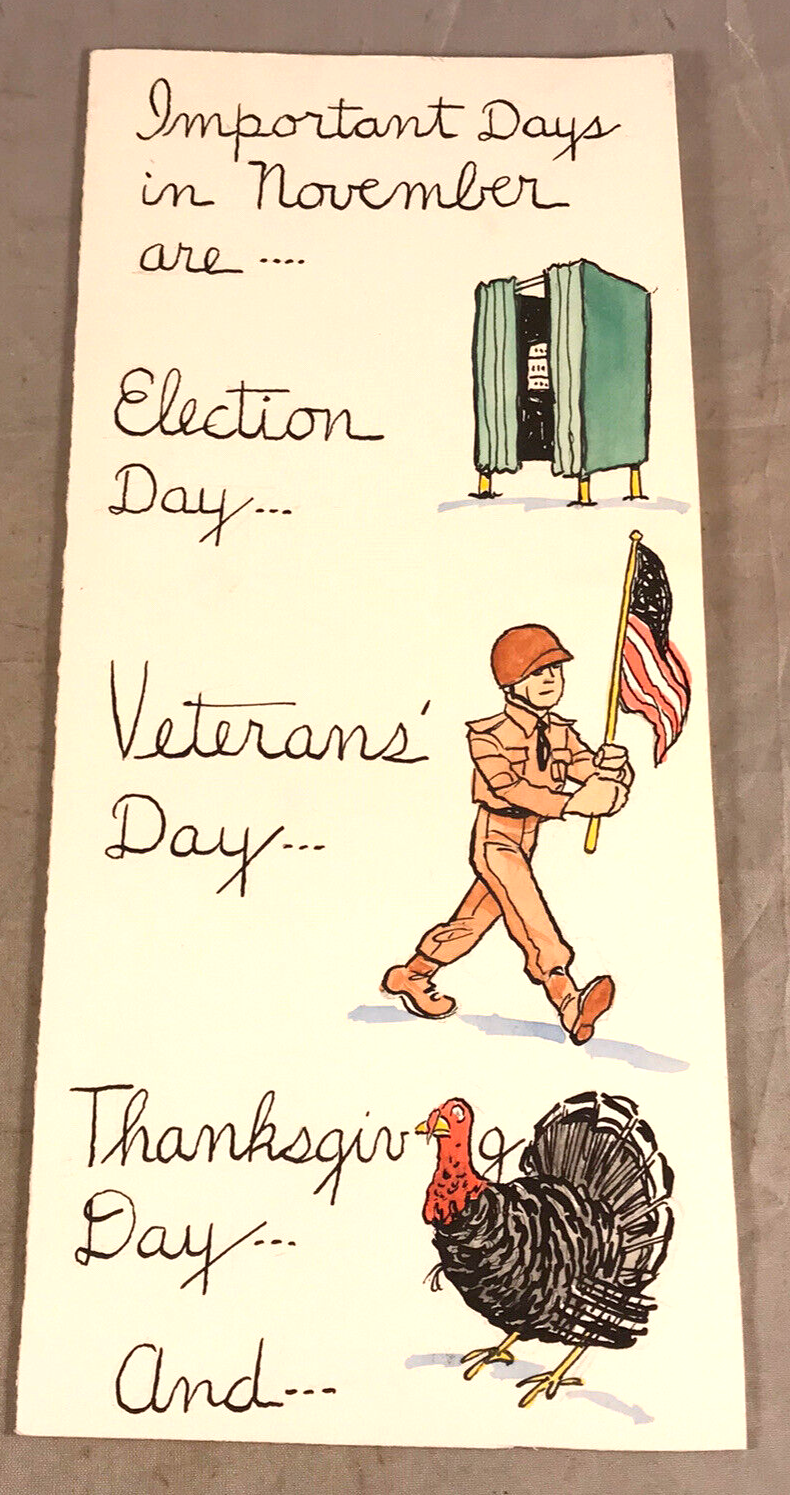 Important Days
in November
are ....
Election
Day...
Veterans'
Day...
Thanksgiv g
Day...
And...